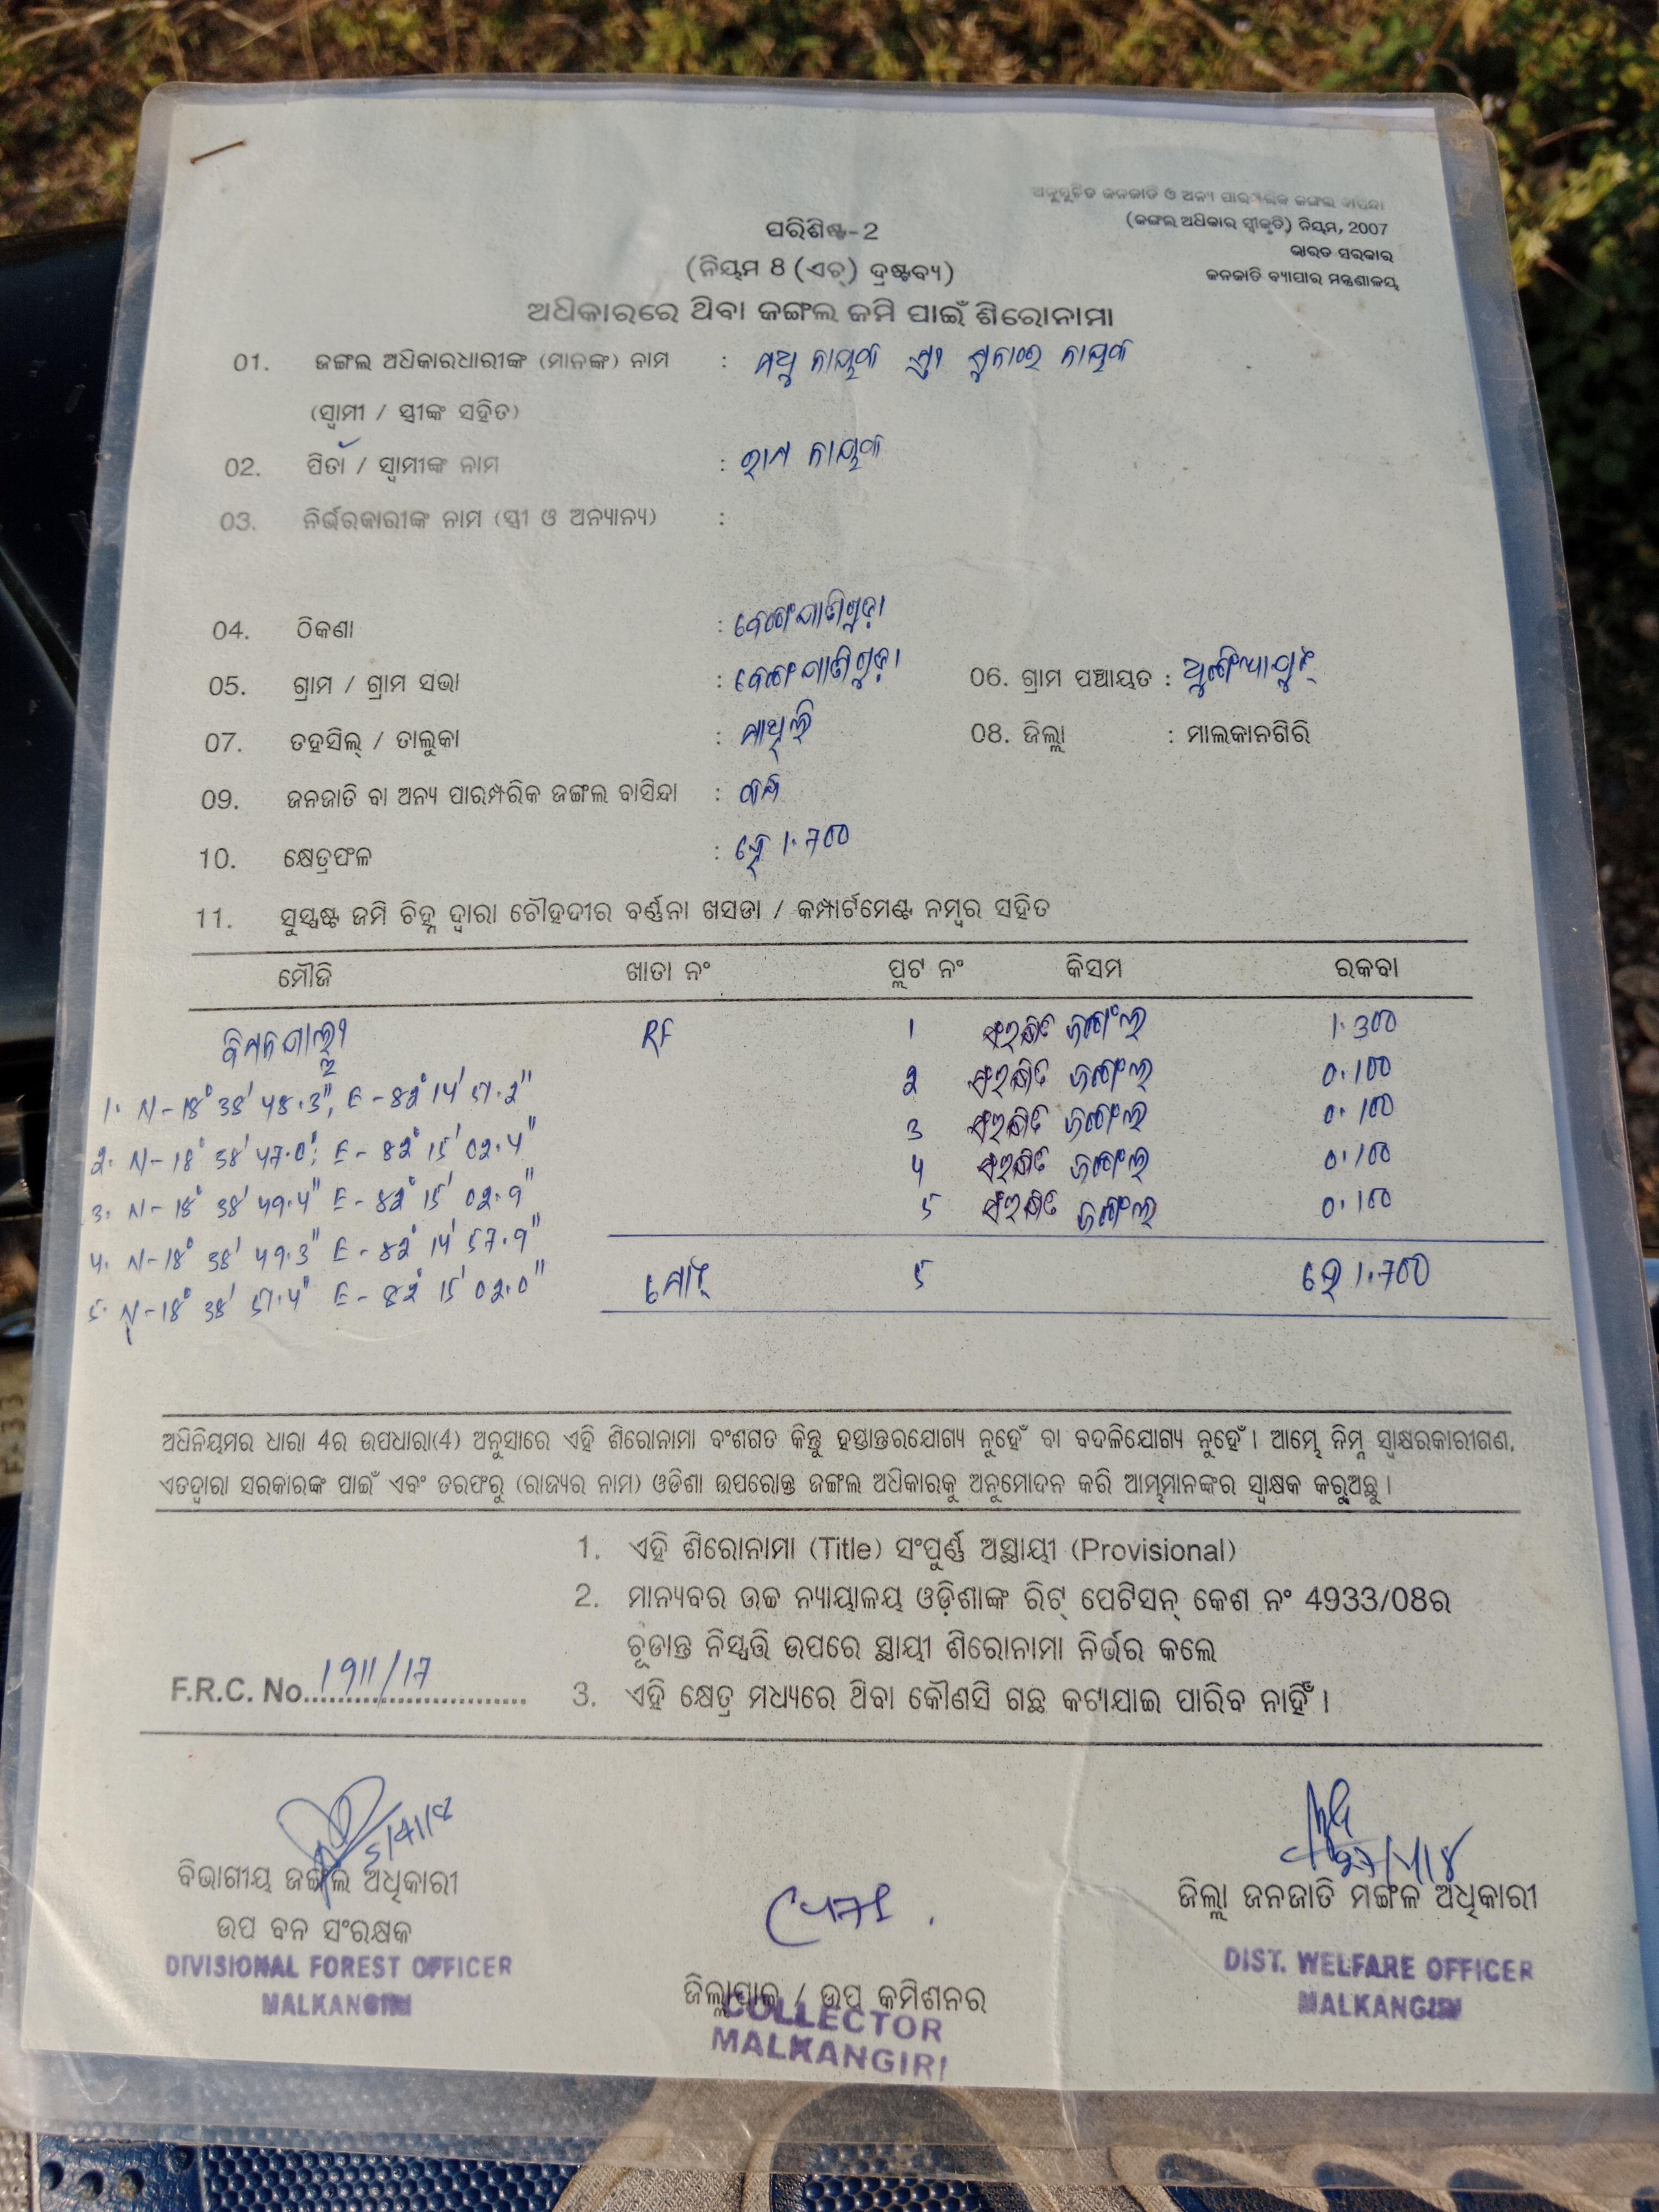 ଅନୁସୂଚିତ ଜନଜାତି ଓ ଅନ୍ୟ ପାରମ୍ପରିକ ଜଙ୍ଗଲ ବାସିନ୍ଦା
(ଜଙ୍ଗଲ ଅଧିକାର ସ୍ୱୀକୃତି) ନିୟମ, 2007
ଭାରତ ସରକାର
ଜନଜାତି ବ୍ୟାପାର ମନ୍ତ୍ରଣାଳୟ
ପରିଶିଷ୍ଟ-2
(ନିୟମ 8 (ଏଚ୍) ଦ୍ରଷ୍ଟବ୍ୟ)
ଅଧିକାରରେ ଥିବା ଜଙ୍ଗଲ ଜମି ପାଇଁ ଶିରୋନାମା
01. ଜଙ୍ଗଲ ଅଧିକାରଧାରୀଙ୍କ (ମାନଙ୍କ) ନାମ : ମଧୁ ନାୟକ ନାୟକ
(ସ୍ୱାମୀ / ସ୍ତ୍ରୀଙ୍କ ସହିତ)
02. ପିତା / ସ୍ୱାମୀଙ୍କ ନାମ : ରାମ ନାୟକ
03. ନିର୍ଭରକାରୀଙ୍କ ନାମ (ସ୍ତ୍ରୀ ଓ ଅନ୍ୟାନ୍ୟ) :
04. ଠିକଣା :
05. ଗ୍ରାମ / ଗ୍ରାମ ସଭା : 06. ଗ୍ରାମ ପଞ୍ଚାୟତ :
07. ତହସିଲ୍ / ତାଲୁକା : ମାଥିଲି 08. ଜିଲ୍ଲା : ମାଲକାନଗିରି
09. ଜନଜାତି ବା ଅନ୍ୟ ପାରମ୍ପରିକ ଜଙ୍ଗଲ ବାସିନ୍ଦା :
10. କ୍ଷେତ୍ରଫଳ : ହେ 1.700
11. ସୁସ୍ପଷ୍ଟ ଜମି ଚିହ୍ନ ଦ୍ୱାରା ଚୌହଦୀର ବର୍ଣ୍ଣନା ଖସଡା / କମ୍ପାର୍ଟମେଣ୍ଟ ନମ୍ବର ସହିତ
ମୌଜି ଖାତା ନଂ ପ୍ଲଟ ନଂ କିସମ ରକବା
RF 1 ସଂରକ୍ଷିତ ଜଙ୍ଗଲ 1.300
2 ସଂରକ୍ଷିତ ଜଙ୍ଗଲ 0.100
1. N-18° 38' 48.3", E-82° 14' 57.2"
3 ସଂରକ୍ଷିତ ଜଙ୍ଗଲ 0.100
2. N-18° 38' 47.0", E-82° 15' 02.4"
4 ସଂରକ୍ଷିତ ଜଙ୍ଗଲ 0.100
3. N-18° 38' 49.4" E-82° 15' 02.9"
5 ସଂରକ୍ଷିତ ଜଙ୍ଗଲ 0.100
4. N-18° 38' 49.3" E-82° 14' 57.9"
5. N-18° 38' 51.4" E-82° 15' 02.0"
ମୋଟ୍ 5 ହେ 1.700
ଅଧିନିୟମର ଧାରା 4ର ଉପଧାରା(4) ଅନୁସାରେ ଏହି ଶିରୋନାମା ବଂଶଗତ କିନ୍ତୁ ହସ୍ତାନ୍ତରଯୋଗ୍ୟ ନୁହେଁ ବା ବଦଳିଯୋଗ୍ୟ ନୁହେଁ। ଆମ୍ଭେ ନିମ୍ନ ସ୍ୱାକ୍ଷରକାରୀଗଣ,
ଏତଦ୍ୱାରା ସରକାରଙ୍କ ପାଇଁ ଏବଂ ତରଫରୁ (ରାଜ୍ୟର ନାମ) ଓଡିଶା ଉପରୋକ୍ତ ଜଙ୍ଗଲ ଅଧିକାରକୁ ଅନୁମୋଦନ କରି ଆମ୍ଭମାନଙ୍କର ସ୍ୱାକ୍ଷକ କରୁଅଛୁ।
1. ଏହି ଶିରୋନାମା (Title) ସଂପୂର୍ଣ୍ଣ ଅସ୍ଥାୟୀ (Provisional)
2. ମାନ୍ୟବର ଉଚ୍ଚ ନ୍ୟାୟାଳୟ ଓଡ଼ିଶାଙ୍କ ରିଟ୍ ପେଟିସନ୍ କେଶ ନଂ 4933/08ର
ଚୂଡାନ୍ତ ନିସ୍ପତ୍ତି ଉପରେ ସ୍ଥାୟୀ ଶିରୋନାମା ନିର୍ଭର କଲେ
F.R.C. No. 1911/17
3. ଏହି କ୍ଷେତ୍ର ମଧ୍ୟରେ ଥିବା କୌଣସି ଗଛ କଟାଯାଇ ପାରିବ ନାହିଁ।
ବିଭାଗୀୟ ଜଙ୍ଗଲ ଅଧିକାରୀ
ଉପ ବନ ସଂରକ୍ଷକ
DIVISIONAL FOREST OFFICER
MALKANGIRI
ଜିଲ୍ଲାପାଳ / ଉପ କମିଶନର
COLLECTOR
MALKANGIRI
ଜିଲ୍ଲା ଜନଜାତି ମଙ୍ଗଳ ଅଧିକାରୀ
DIST. WELFARE OFFICER
MALKANGIRI